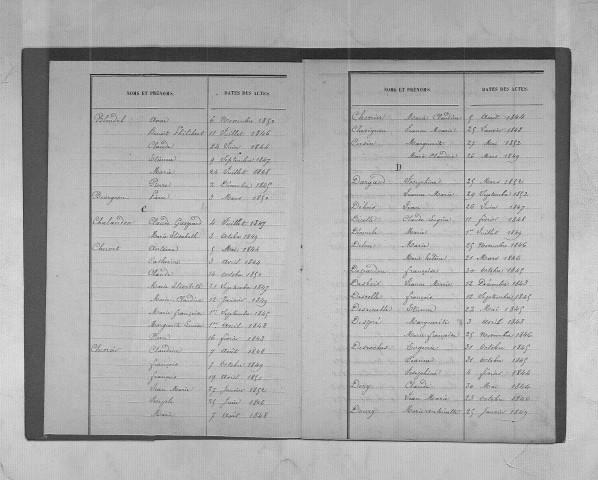 NOMS ET PRÉNOMS. DATES DES ACTES.
Blondel Anne 6 Novembre 1850
Benoit Philibert 11 Juillet 1846
Claude 24 Juin 1844
Etienne 9 Septembre 1847
Marie 24 Juillet 1848
Pierre 2 Décembre 1845
Bourgeon Pierre 3 Mars 1850
C
Chalandon Claude Gaspard 4 Juillet 1847
Marie Elisabeth 3 Octobre 1849
Antoine 5 Mai 1844
Catherine 3 Avril 1844
Claude 14 Octobre 1850
Marie Elisabeth 21 Septembre 1847
Marie Claudine 12 Janvier 1849
Marie françoise 1er Septembre 1845
Marguerite 1er Avril 1843
Pierre 16 février 1843
Claudine 9 Août 1846
françois 7 Octobre 1849
françois 19 Août 1850
Jean Marie 27 Janvier 1852
Joseph 25 Juin 1846
Marie 7 Août 1848
NOMS ET PRÉNOMS. DATES DES ACTES.
Marie Claudine 5 Août 1844
Jeanne Marie 25 Janvier 1843
Marguerite 27 Mai 1852
Marie Claudine 26 Mars 1849
D
Dargaud Joséphine 25 Mars 1852
Jeanne Marie 29 Septembre 1852
Jean 26 Juin 1847
Claude 11 février 1848
Marie 1er Juillet 1849
Marie 25 Novembre 1846
Marie 21 Mars 1846
françoise 20 Octobre 1845
Jeanne Marie 12 Décembre 1843
françois 12 Septembre 1845
Etienne 22 Mai 1845
Marguerite 3 Avril 1843
Marie françoise 25 Novembre 1846
Desroches Eugénie 31 Octobre 1845
31 Octobre 1845
Joséphine 4 février 1844
Claude 30 Mai 1844
Jean Marie 23 Octobre 1846
Marie Antoinette 25 Janvier 1849